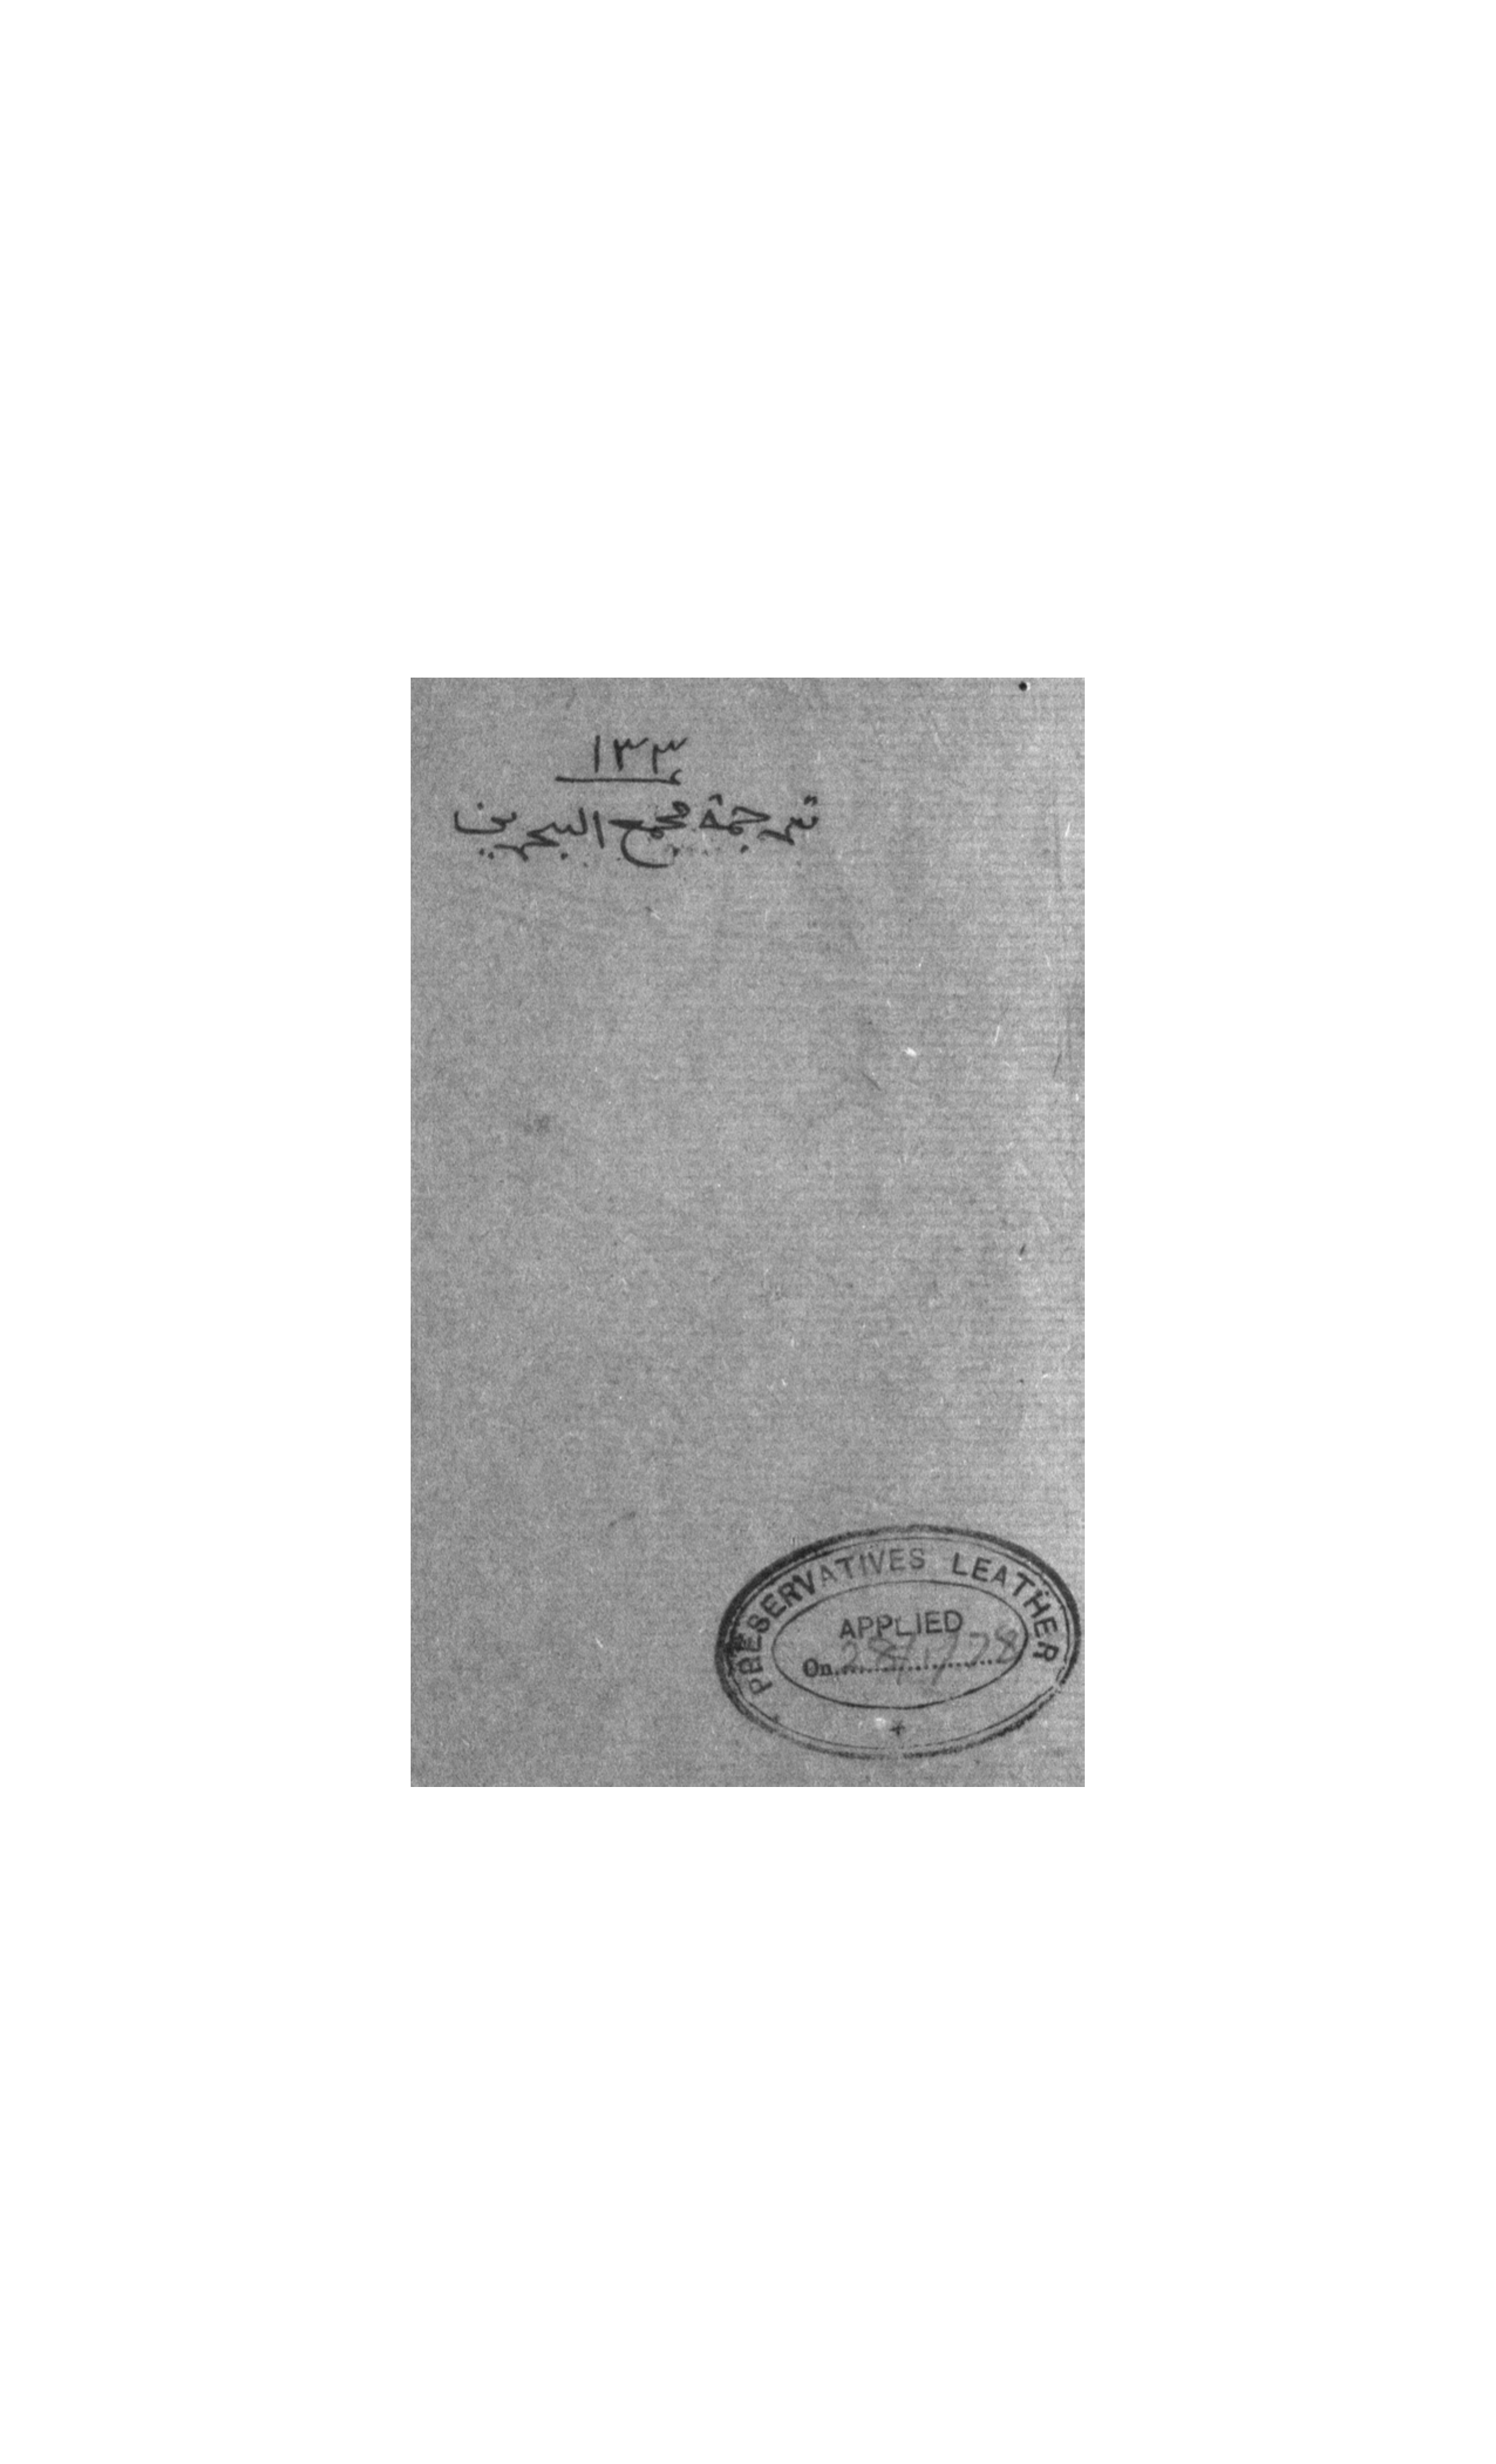 ١٣٣
ترجمة مجمع البحرين
PRESERVATIVES LEATHER
APPLIED
On 28/1/78